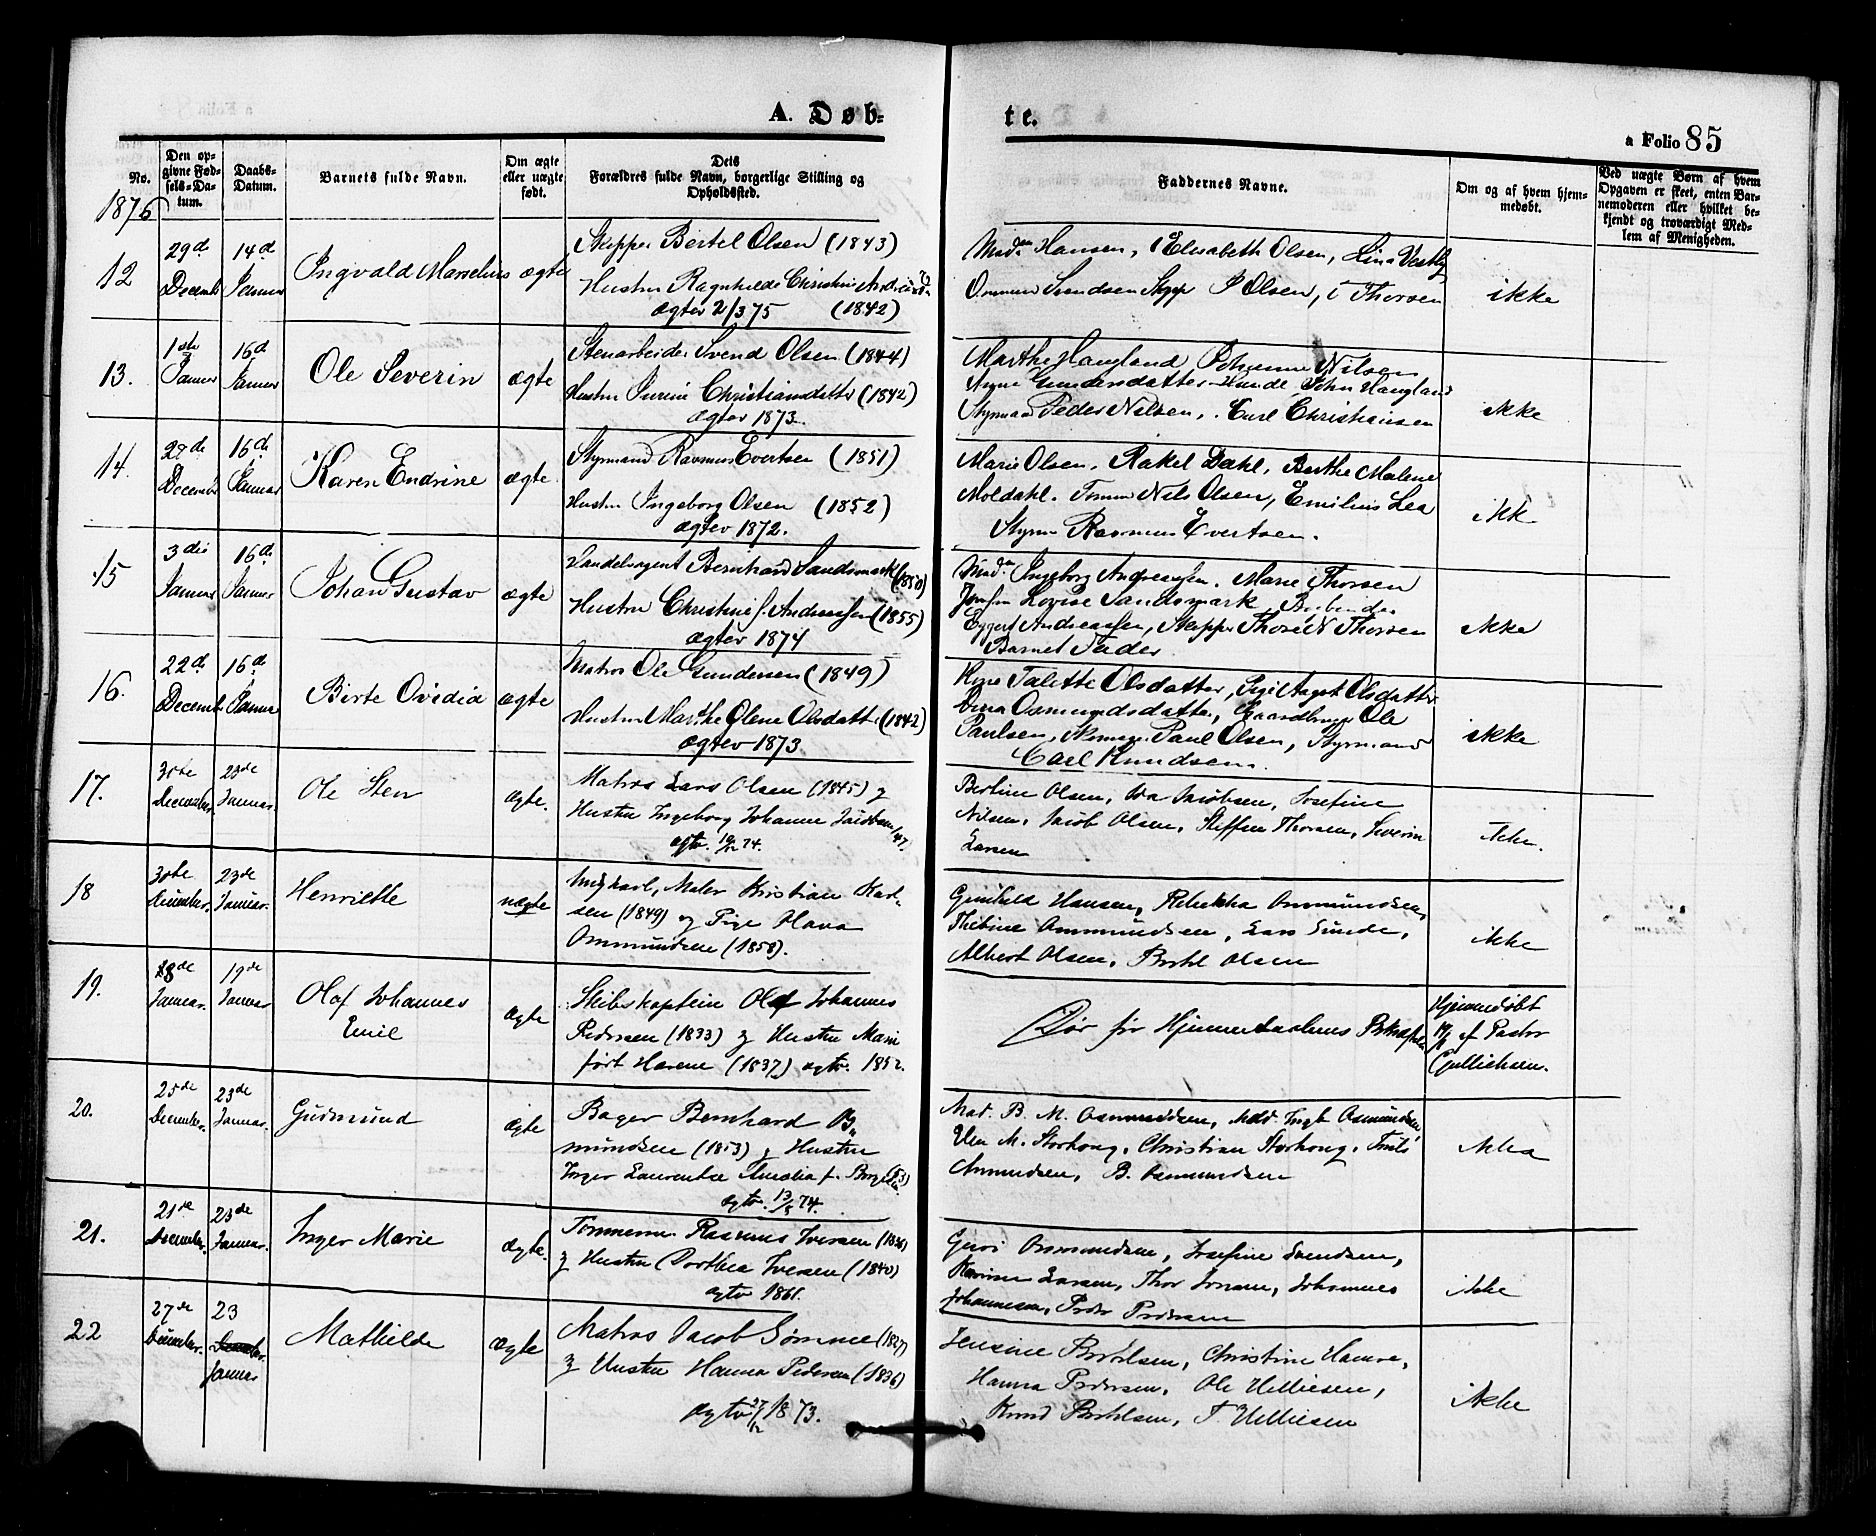 A. Døb-
te.
a Folio 85
No.
Den op-
givne Fød-
sels-Da-
tum.
Daabs-
Datum.
Barnets fulde Navn.
Om ægte
eller uægte
født.
Dets
Forældres fulde Navn, borgerlige Stilling og
Opholdssted.
Faddernes Navne.
Om og af hvem hjem-
medøbt.
Ved uægte Børn af hvem
Opgaven er skeet, enten Bar-
nemoderen eller hvilket be-
kjendt og troværdigt Med-
lem af Menigheden.
1876
12
29d
14d
Januar
Ingvald Marselius
ægte
Skipper Bertel Olsen (1843)
Hustru Ragnhilde Christine
ægtev 2/3 75 (1842)
Hansen, Elisabeth Olsen, Lina
Svendsen Olsen, T Thorsen
ikke
13.
1ste
Januar
16d
Januar
Ole Severin
ægte
Stenarbeider Svend Olsen (1844)
Hustru Christiansdatter (1842)
ægtev 1873.
Marthe Haugland Nilsen
Gundersdatter John Haugland
Styrmand Peder Nilsen, Carl Christiansen
ikke
14.
16d
Januar
Karen Endrine
ægte
Styrmand Rasmus Evertsen (1851)
Hustru Ingeborg Olsen (1852)
ægtev 1872.
Marie Olsen, Rakel Dahl, Berthe Malene
Moldahl. Nils Olsen, Emilius Lea
Styrm Rasmus Evertsen.
ikk
15
3die
Januar
16d
Januar
Johan Gustav
ægte
Handelsagent Bernhard Sandsmark (1850)
Hustru Christine f. Andreassen (1855)
ægtev 1874
Ingeborg Andreassen. Marie Thorsen
Jomfru Lovise Sandsmark,
Andreassen, Skipper N Thorsen
Barnets Fader
ikke
16.
22d
Decemb
16d
Januar
Birte Ovidia
ægte
Matros Ole Gundersen (1849)
Hustru Marthe Olene Olsdatter (1842)
ægtev 1873.
Talette Olsdatter, Olsdatter
Osmundsdatter, Ole
Paulsen, Paul Olsen, Styrmand
Carl Knudsen.
ikke
17.
30te
December.
23de
Januar.
Ole Sten
ægte.
Matros Lars Olsen (1845) og
Hustru Ingeborg Johanne Jacobsen (47)
74.
Bertine Olsen, Jacobsen, Josefine
Nilsen, Jacob Olsen, Steffen Thorsen, Severin
Larsen
ikke.
18
30te
December.
23de
Januar.
Henriette
uægte
Ungkarl, Maler Kristian Karl-
sen (1849) og Pige
Ommundsen (1858).
Gunhild Hansen, Rebekka Ommundsen,
Ommundsen, Lars Sunde,
Albert Olsen, Bertel Olsen
ikke
19.
Januar.
19de
Januar.
Olaf Johannes
Emil
ægte
Skibskaptein Olaf Johannes
Pedersen (1833) og Hustru Marie
født (1837) ægtv. 1852.
Dør før Hjemmedaabens
Hjemmedøbt
af Pastor
Gullichsen.
20.
25de
December.
23de
Januar.
Gudmund
ægte
Bager Bernhard
mundsen (1853) og Hustru
Inger Laurentse Amalia f.
ægtv. 13/5 74.
Mad. B. M. Osmundsen, Mad. Ingb Osmundsen
Elen M. Storhoug, Christian Storhoug,
B. Osmundsen
ikke
21.
21de
December.
23de
Januar.
Inger Marie
ægte.
Tømmerm Rasmus Iversen (1836)
og Hustru Dorthea Iversen (1840)
ægtv 1861.
Guri Ommundsen, Josefine Svendsen,
Larsen, Thor Johannes
Johannesen, Peder Pedersen
ikke
22
27de
December.
23
Januar
Mathilde
ægte
Matros Jacob Sømme (1827)
og Hustru Hanna Pedersen (1836)
ægtv 27/12 1873.
Jensine Bertelsen, Christine
Hanna Pedersen, Ole Helliesen,
Knud Bertelsen, T. Helliesen
ikke